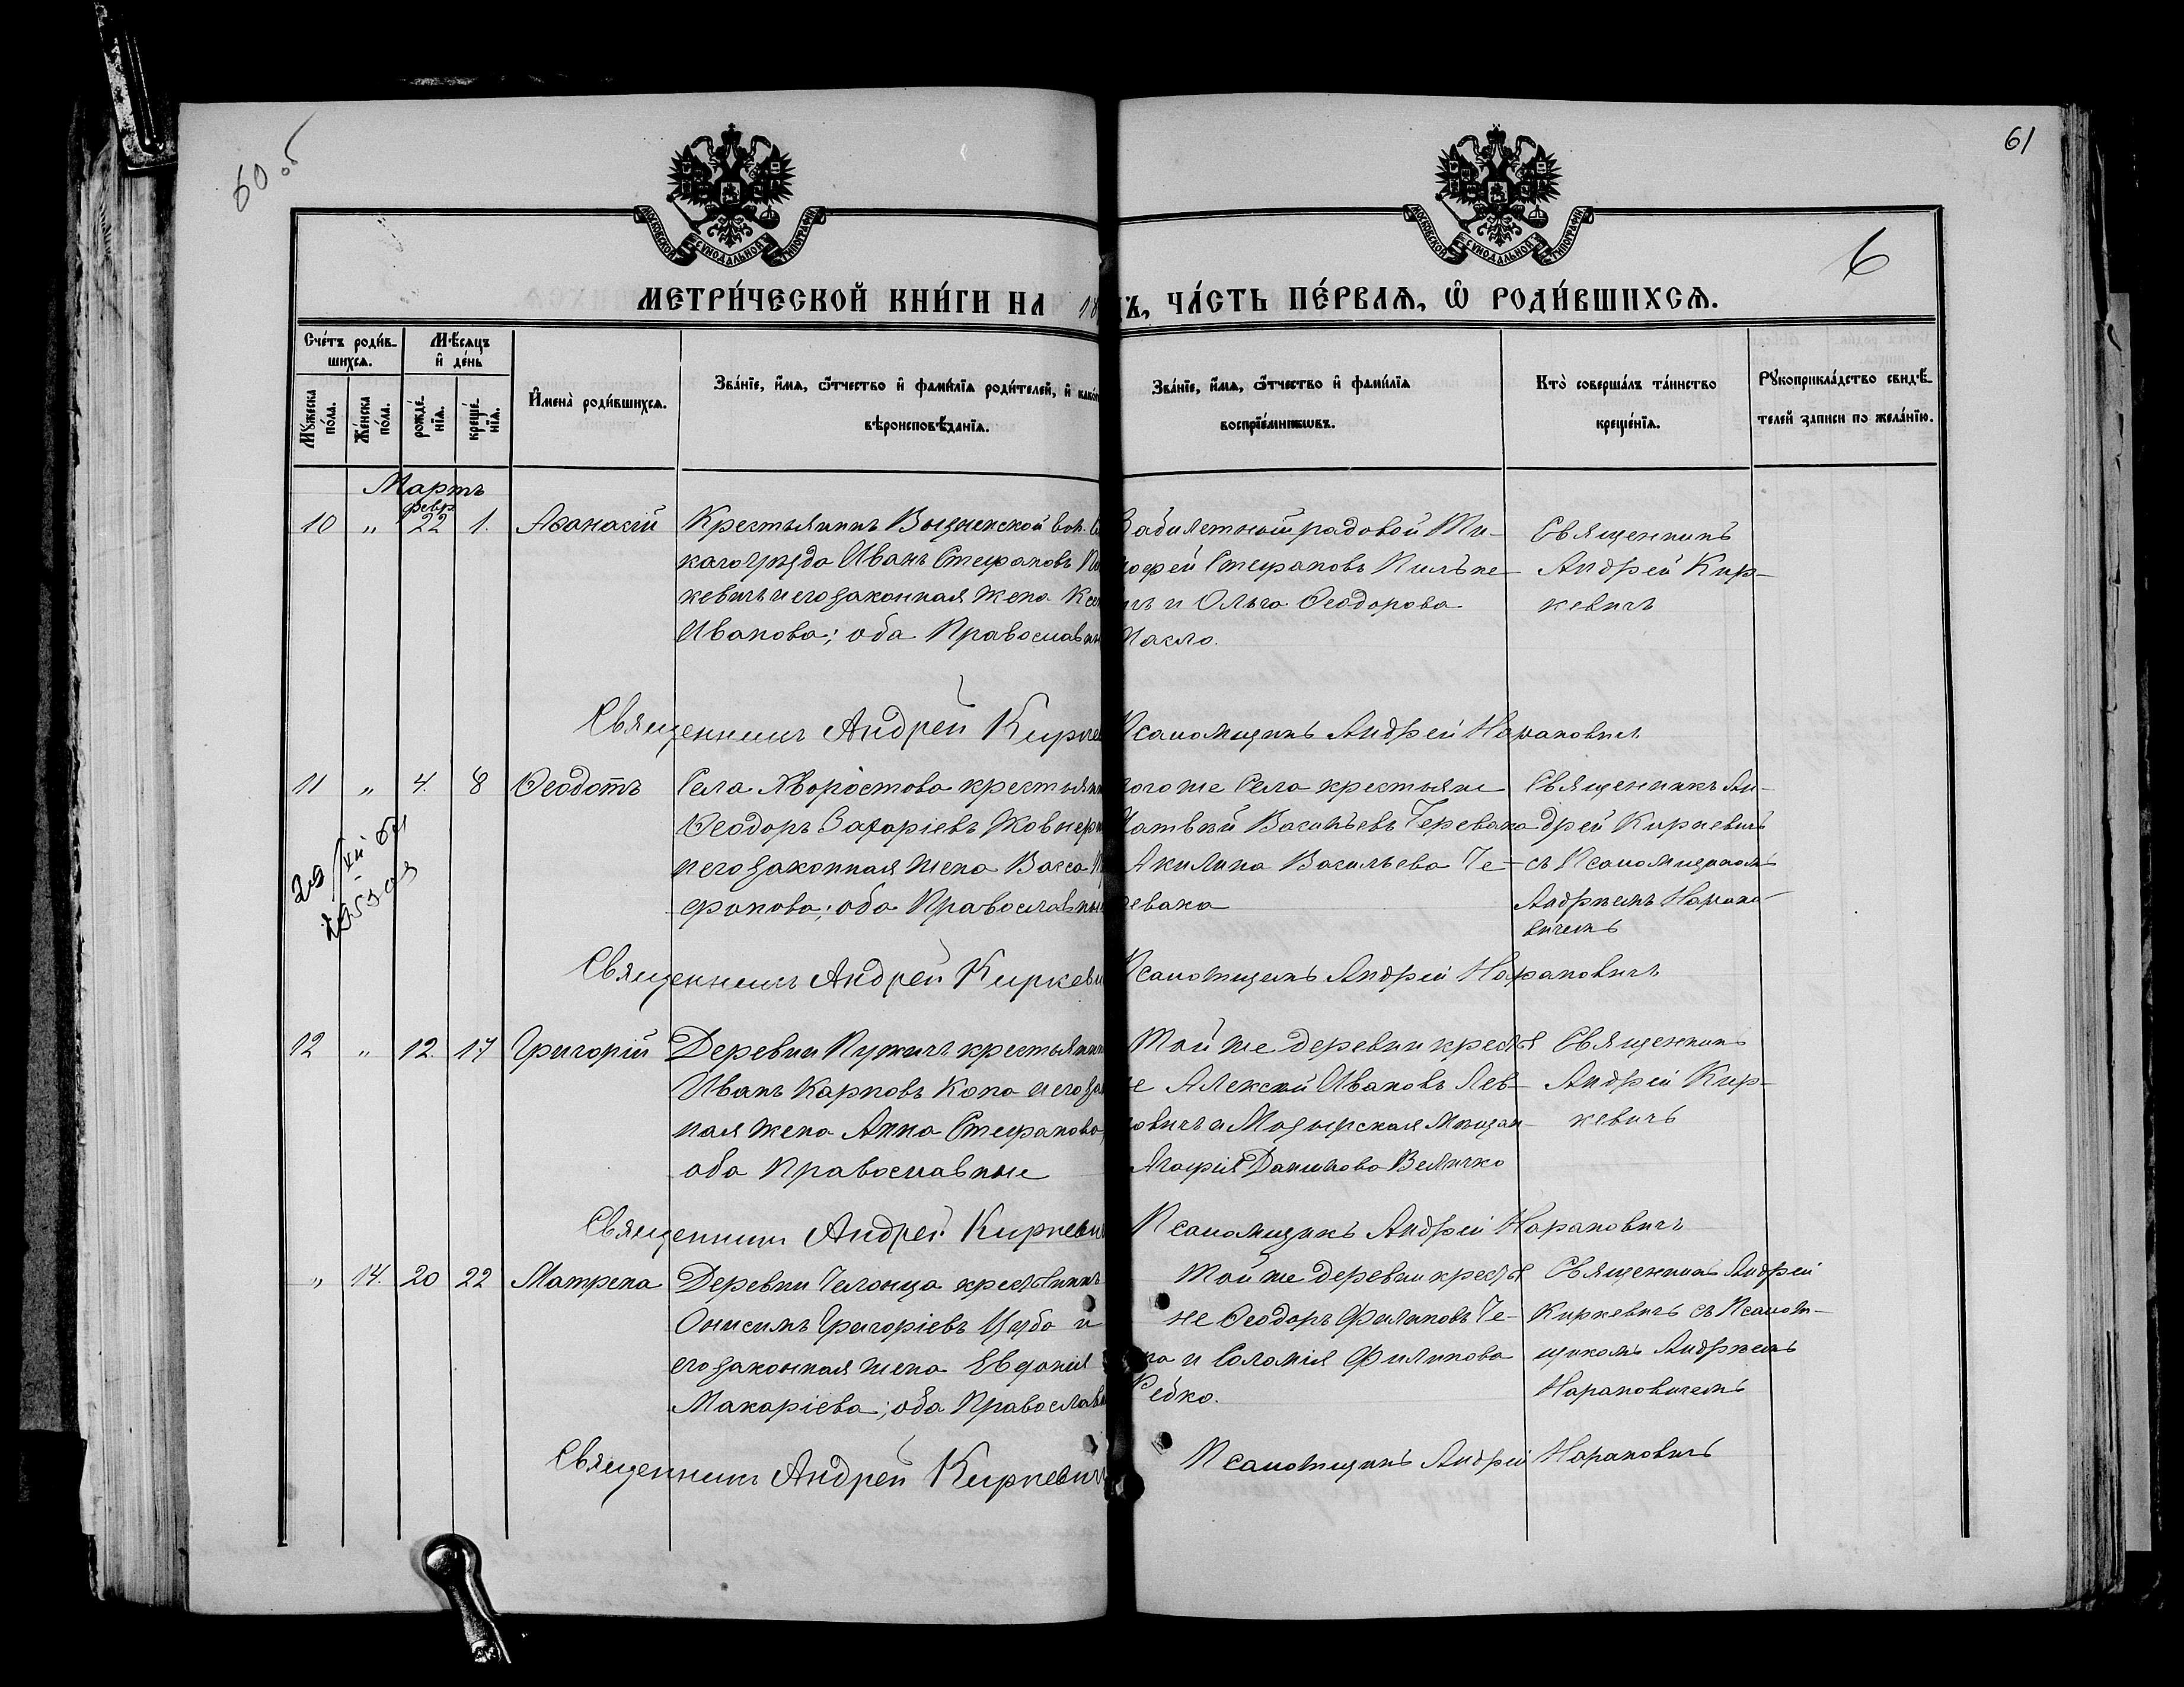 60 об
61
МОСКОВСКОЙ СѴНОДАЛЬНОЙ ТИПОГРАФІИ
МОСКОВСКОЙ СѴНОДАЛЬНОЙ ТИПОГРАФІИ
6
МЕТРИ́ЧЕСКОЙ КНИ́ГИ НА 18
ДЪ, ЧА́СТЬ ПЕ́РВАѦ, Ѡ҆ РОДИ́ВШИХСѦ.
Сче́тъ роди́в-
шихсѧ.
Мѣ́сѧцъ
и҆ де́нь
Мꙋ́жеска по́ла.
Же́нска по́ла.
рожде́-
нїѧ.
креще́-
нїѧ.
И҆мена̀ роди́вшихсѧ.
Зва́нїе, и҆́мѧ, ѻ҆́тчество и҆ фами́лїѧ роди́телей, и҆ како́г
вѣроисповѣ́данїѧ.
Зва́нїе, и҆́мѧ, ѻ҆́тчество и҆ фами́лїѧ
воспрїе́мникѡвъ.
Кто̀ соверша́лъ та́инство
креще́нїѧ.
Рꙋкоприкла́дство свидѣ́-
телей записи по жела́нїю.
Мартъ
10 " февр. 22 1. Аѳанасій
Крестьянинъ вол.
каго уѣзда Иванъ Стефановъ
кевичъ и его законная жена
Иванова; оба Православн
Забилетный рядовой Ти-
моѳей Стефановъ
и Ольга Ѳеодорова
Масло.
Священникъ
Андрей Кир-
кевичъ
Священникъ Андрей Кирке
Псаломщикъ Андрей Нарановичъ
11 " 4. 8 Ѳеодотъ
Села Хворостова крестьянин
Ѳеодоръ Захаріевъ Жовнер
и его законная жена Васса
фонова; оба Православны
того же села крестьяне
Матвѣй Васильевъ Черевако
Акилина Васильева Че-
ревака
Священникъ Ан-
дрей Киркевичъ
съ Псаломщикомъ
Андреемъ Нарано-
вичемъ
29/XII 64
Священникъ Андрей Киркеви
Псаломщикъ Андрей Нарановичъ
12 " 12. 17 Григорій
Деревни Пужичъ крестьянин
Иванъ Карповъ Копа и его зак
ная жена Анна Стефанова
оба Православные
Той же деревни крестья
не Алексѣй Ивановъ Лев-
ковичъ и Мозырская мѣщан-
Агафія Данилова Величко
Священникъ
Андрей Кир-
кевичъ
Священникъ Андрей Киркевич
Псаломщикъ Андрей Нарановичъ
" 14. 20 22 Матрена
Деревни Челонца крестьянинъ
Онисимъ Григоріевъ Цуба и
его законная жена Евдокія
Макаріева; оба Православн
Той же деревни крестья
не Ѳеодоръ Филиповъ Че-
и Соломія Филипова
Редко.
Священникъ Андрей
Киркевичъ съ Псалом-
щикомъ Андреемъ
Нарановичемъ
Священникъ Андрей Киркевич
Псаломщикъ Андрей Нарановичъ